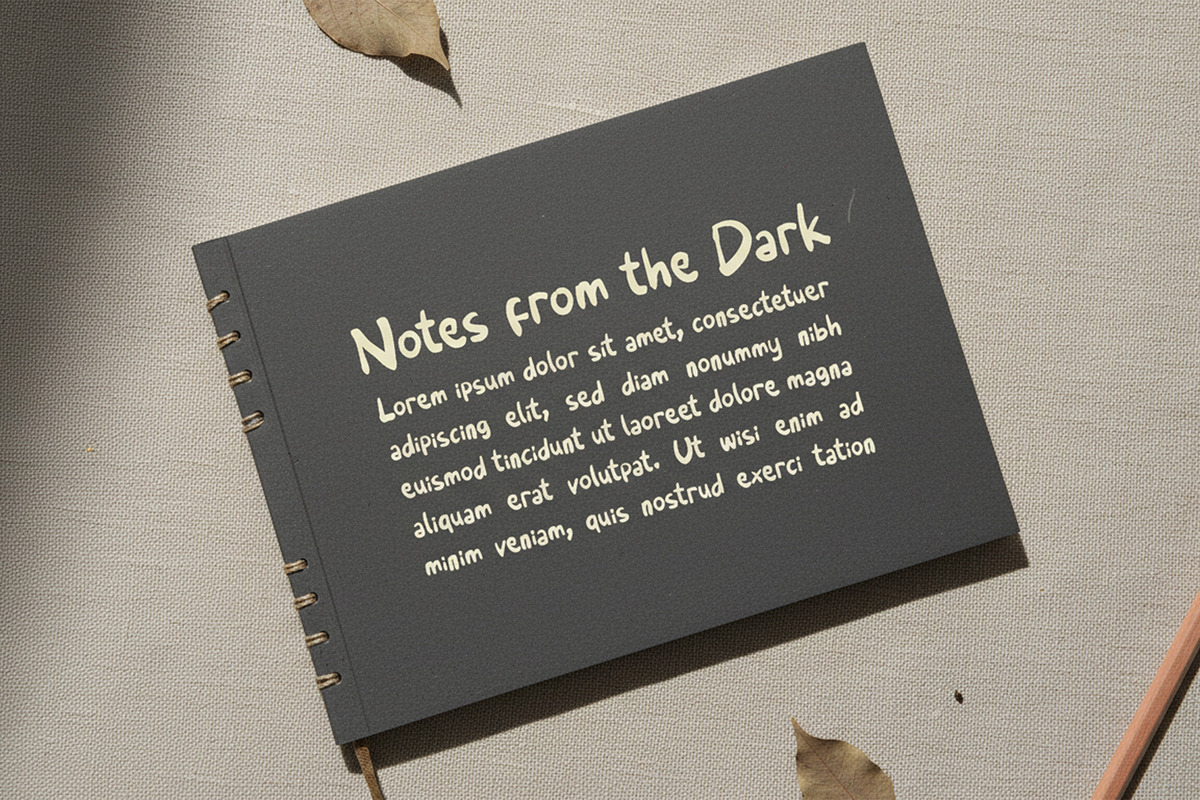 Notes from the Dark
Lorem ipsum dolor sit amet, consectetuer
adipiscing elit, sed diam nonummy nibh
euismod tincidunt ut laoreet dolore magna
aliquam erat volutpat. Ut wisi enim ad
minim veniam, quis nostrud exerci tation